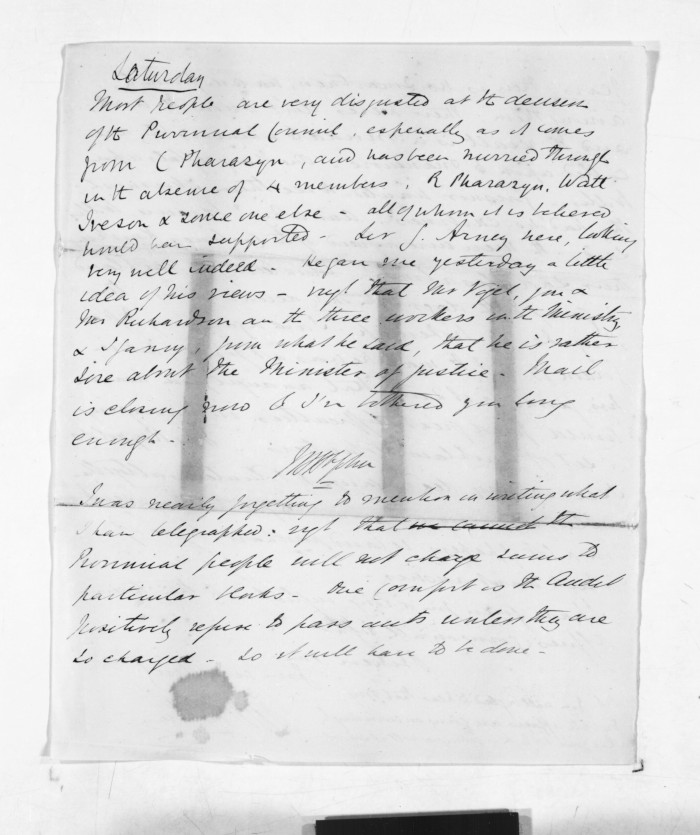 Saturday
Most People are very disgusted at the decision
of the Provincial Council, especially as it comes
from C Pharazyn, and has been hurried through
in the absence of 4 members, R Pharazyn, Watt
Iveson & some one else - all of whom it is believed
would have supported. Sir G. Arney here, looking
very well indeed. He gave me yesterday a little
idea of his views - that Mr Vogel, you &
Mr Richardson are the three workers in the Ministry
& I fancy, from what he said, that he is rather
sore about the Minister of Justice. Mail
is closing now & I've bothered you long
enough -
I was nearly forgetting to mention in writing what
I have telegraphed: that we cannot the
Provincial people will not charge sums to
particular blocks. One comfort is the Audit
positively refuse to pass accts unless they are
so charged - so it will have to be done -